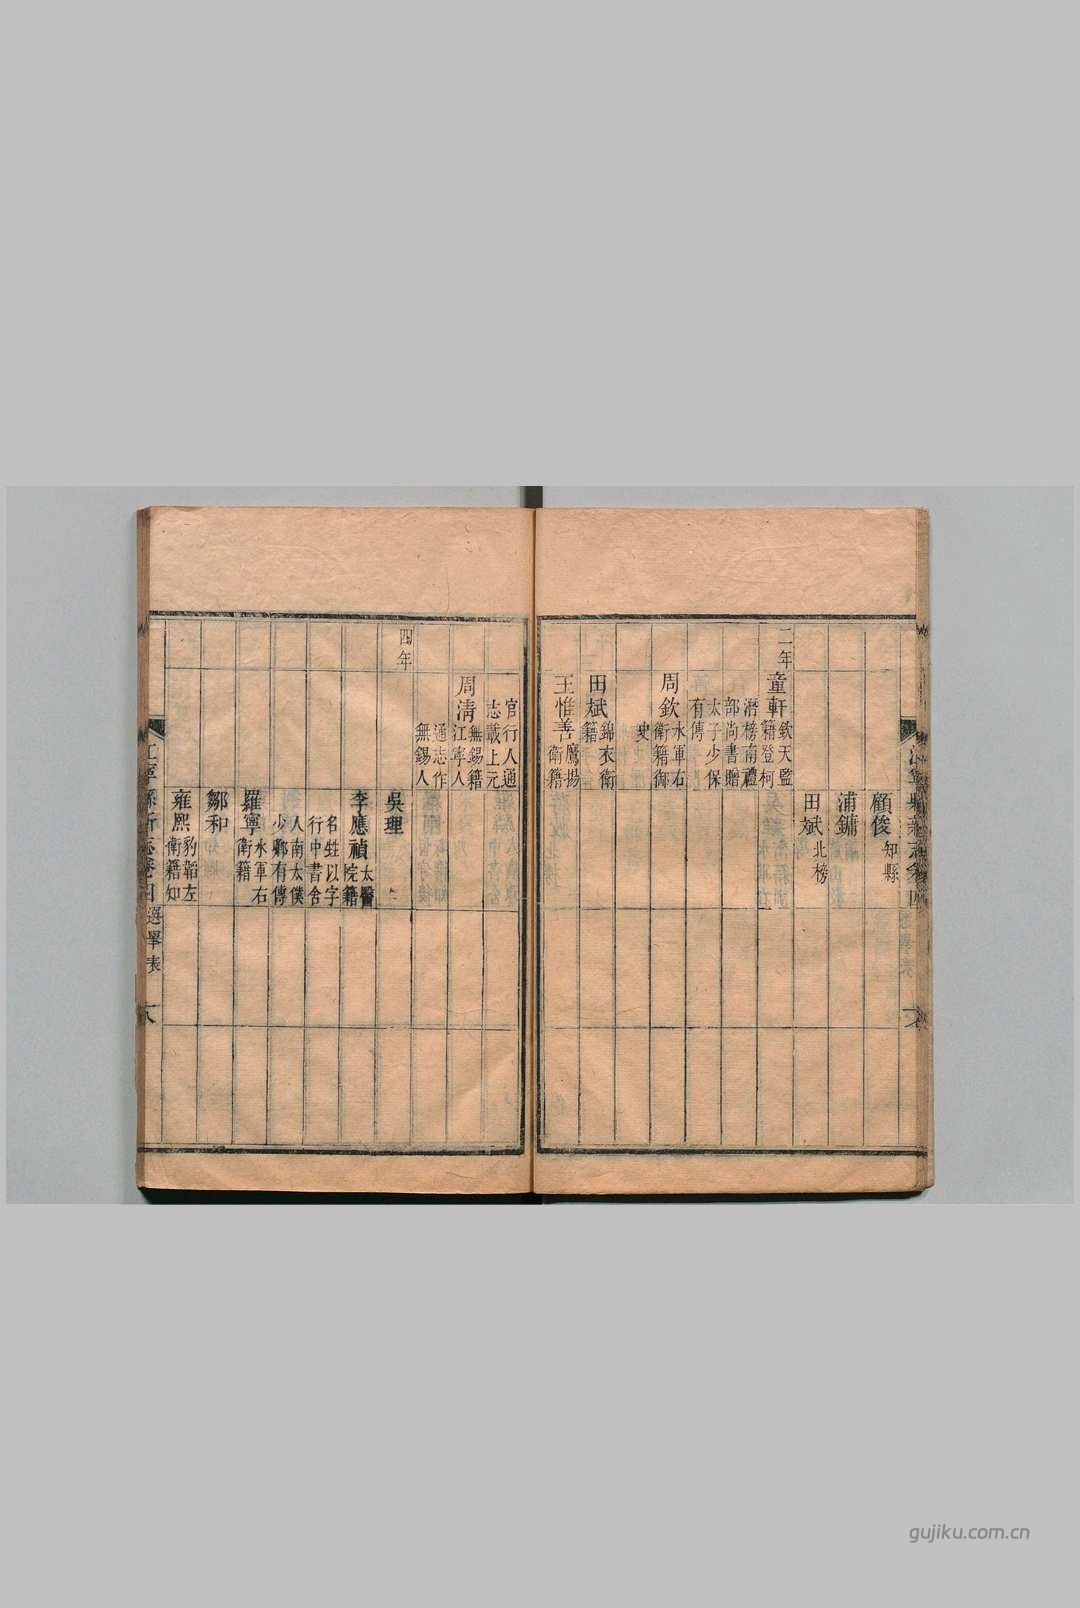 顧俊 知縣
浦鏞
田斌 北榜
二年 童軒 欽天監
籍登柯
潛榜南禮
部尚書贈
太子少保
有傳
周欽 水軍右
衛籍御
史
田斌 錦衣衛
籍
王惟善 鷹揚
衛籍
官行人通
志載上元
周清 無錫籍
江寧人
通志作
無錫人
四年
吳理
李應禎 太醫
院籍
名甡以字
行中書舍
人南太僕
少卿有傳
羅寧 水軍右
衛籍
鄒和
雍熙 豹韜左
衛籍知
江寧縣新志卷四 選舉表
gujiku.com.cn